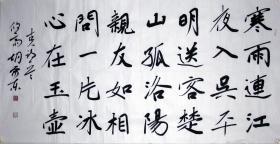 寒雨連江
夜入吳平
明送客楚
山孤洛陽
親友如相
問一片冰
心在玉壺